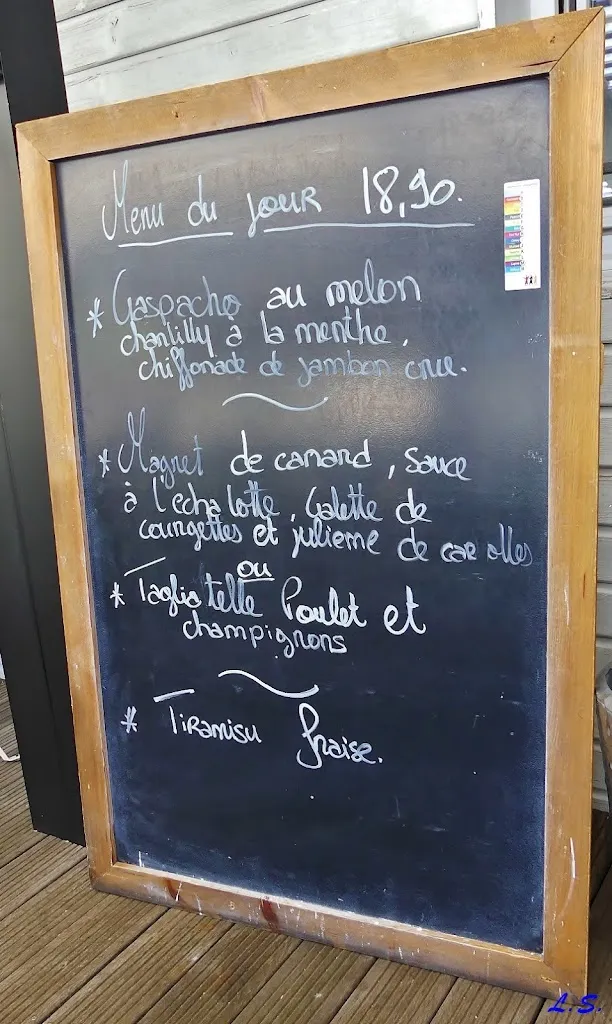 Menu du jour 18,90.
* Gaspacho au melon
chantilly à la menthe,
chiffonade de jambon crue.
* Magret de canard, sauce
à l'echalotte, Galette de
courgettes et julienne de carottes
ou
* Tagliatelle Poulet et
champignons
* Tiramisu fraise.
L.S.